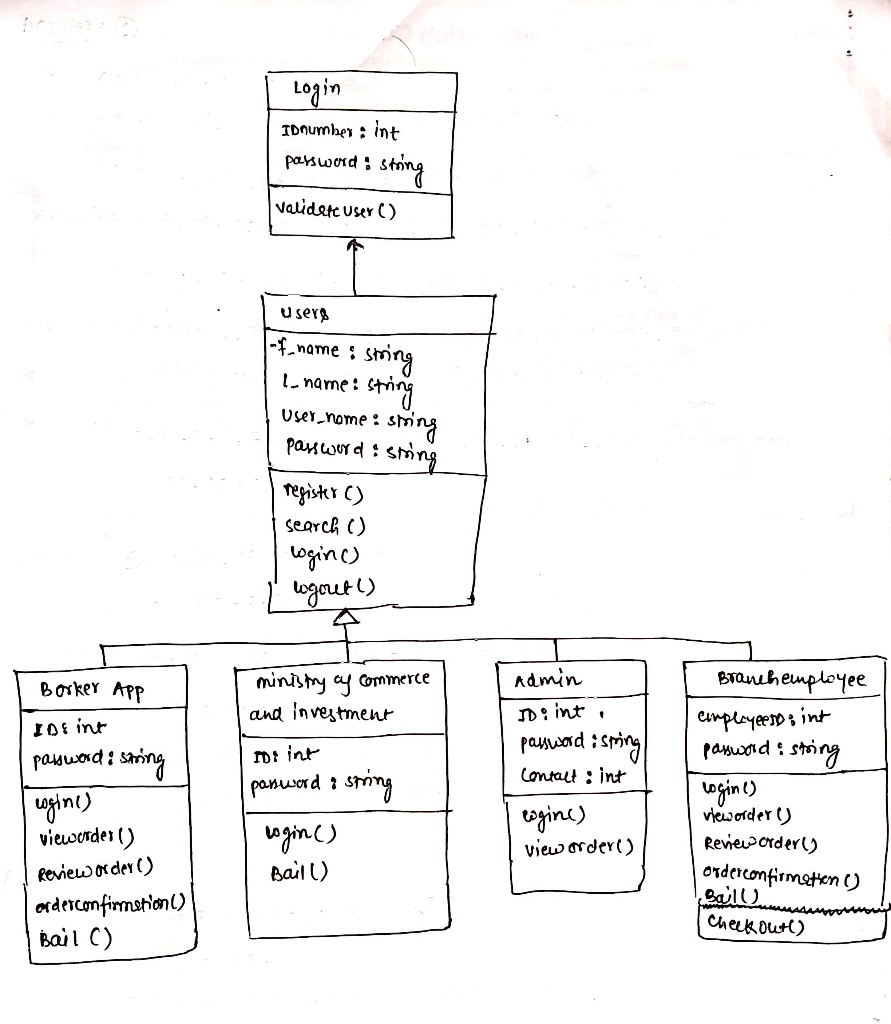 Login
IDnumber : int
password : string
validate user ()
users
-f_name : string
l_name : string
User_name : string
password : string
register ()
search ()
login ()
logout ()
Borker App
ID : int
password : string
login ()
vieworder ()
Review order ()
orderconfirmation ()
Bail ()
ministry of commerce
and investment
ID : int
password : string
login ()
Bail ()
Admin
ID : int
password : string
Contact : int
login ()
view order ()
Branchemployee
employeeID : int
password : string
login ()
vieworder ()
Review order ()
orderconfirmation ()
Bail ()
Checkout ()